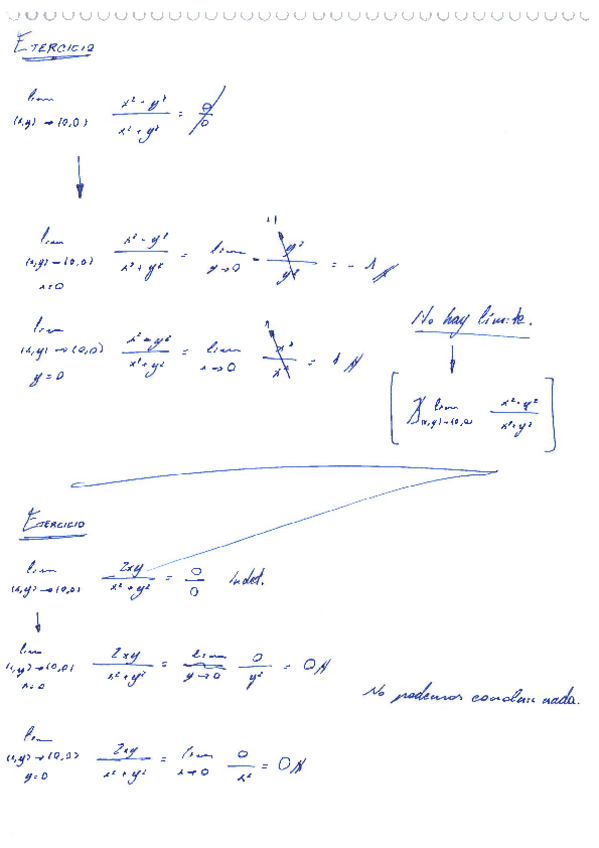 EJERCICIO
lim (x,y)→(0,0) x² - y² / x² + y² = 0/0
↓
lim (x,y)→(0,0) x=0 x² - y² / x² + y² = lim y→0 - y² / y² = -1
lim (x,y)→(0,0) y=0 x² - y² / x² + y² = lim x→0 x² / x² = 1
No hay límite.
↓
[ ∄ lim (x,y)→(0,0) x² - y² / x² + y² ]
EJERCICIO
lim (x,y)→(0,0) 2xy / x² + y² = 0/0 Indet.
↓
lim (x,y)→(0,0) x=0 2xy / x² + y² = lim y→0 0 / y² = 0
No podemos concluir nada.
lim (x,y)→(0,0) y=0 2xy / x² + y² = lim x→0 0 / x² = 0